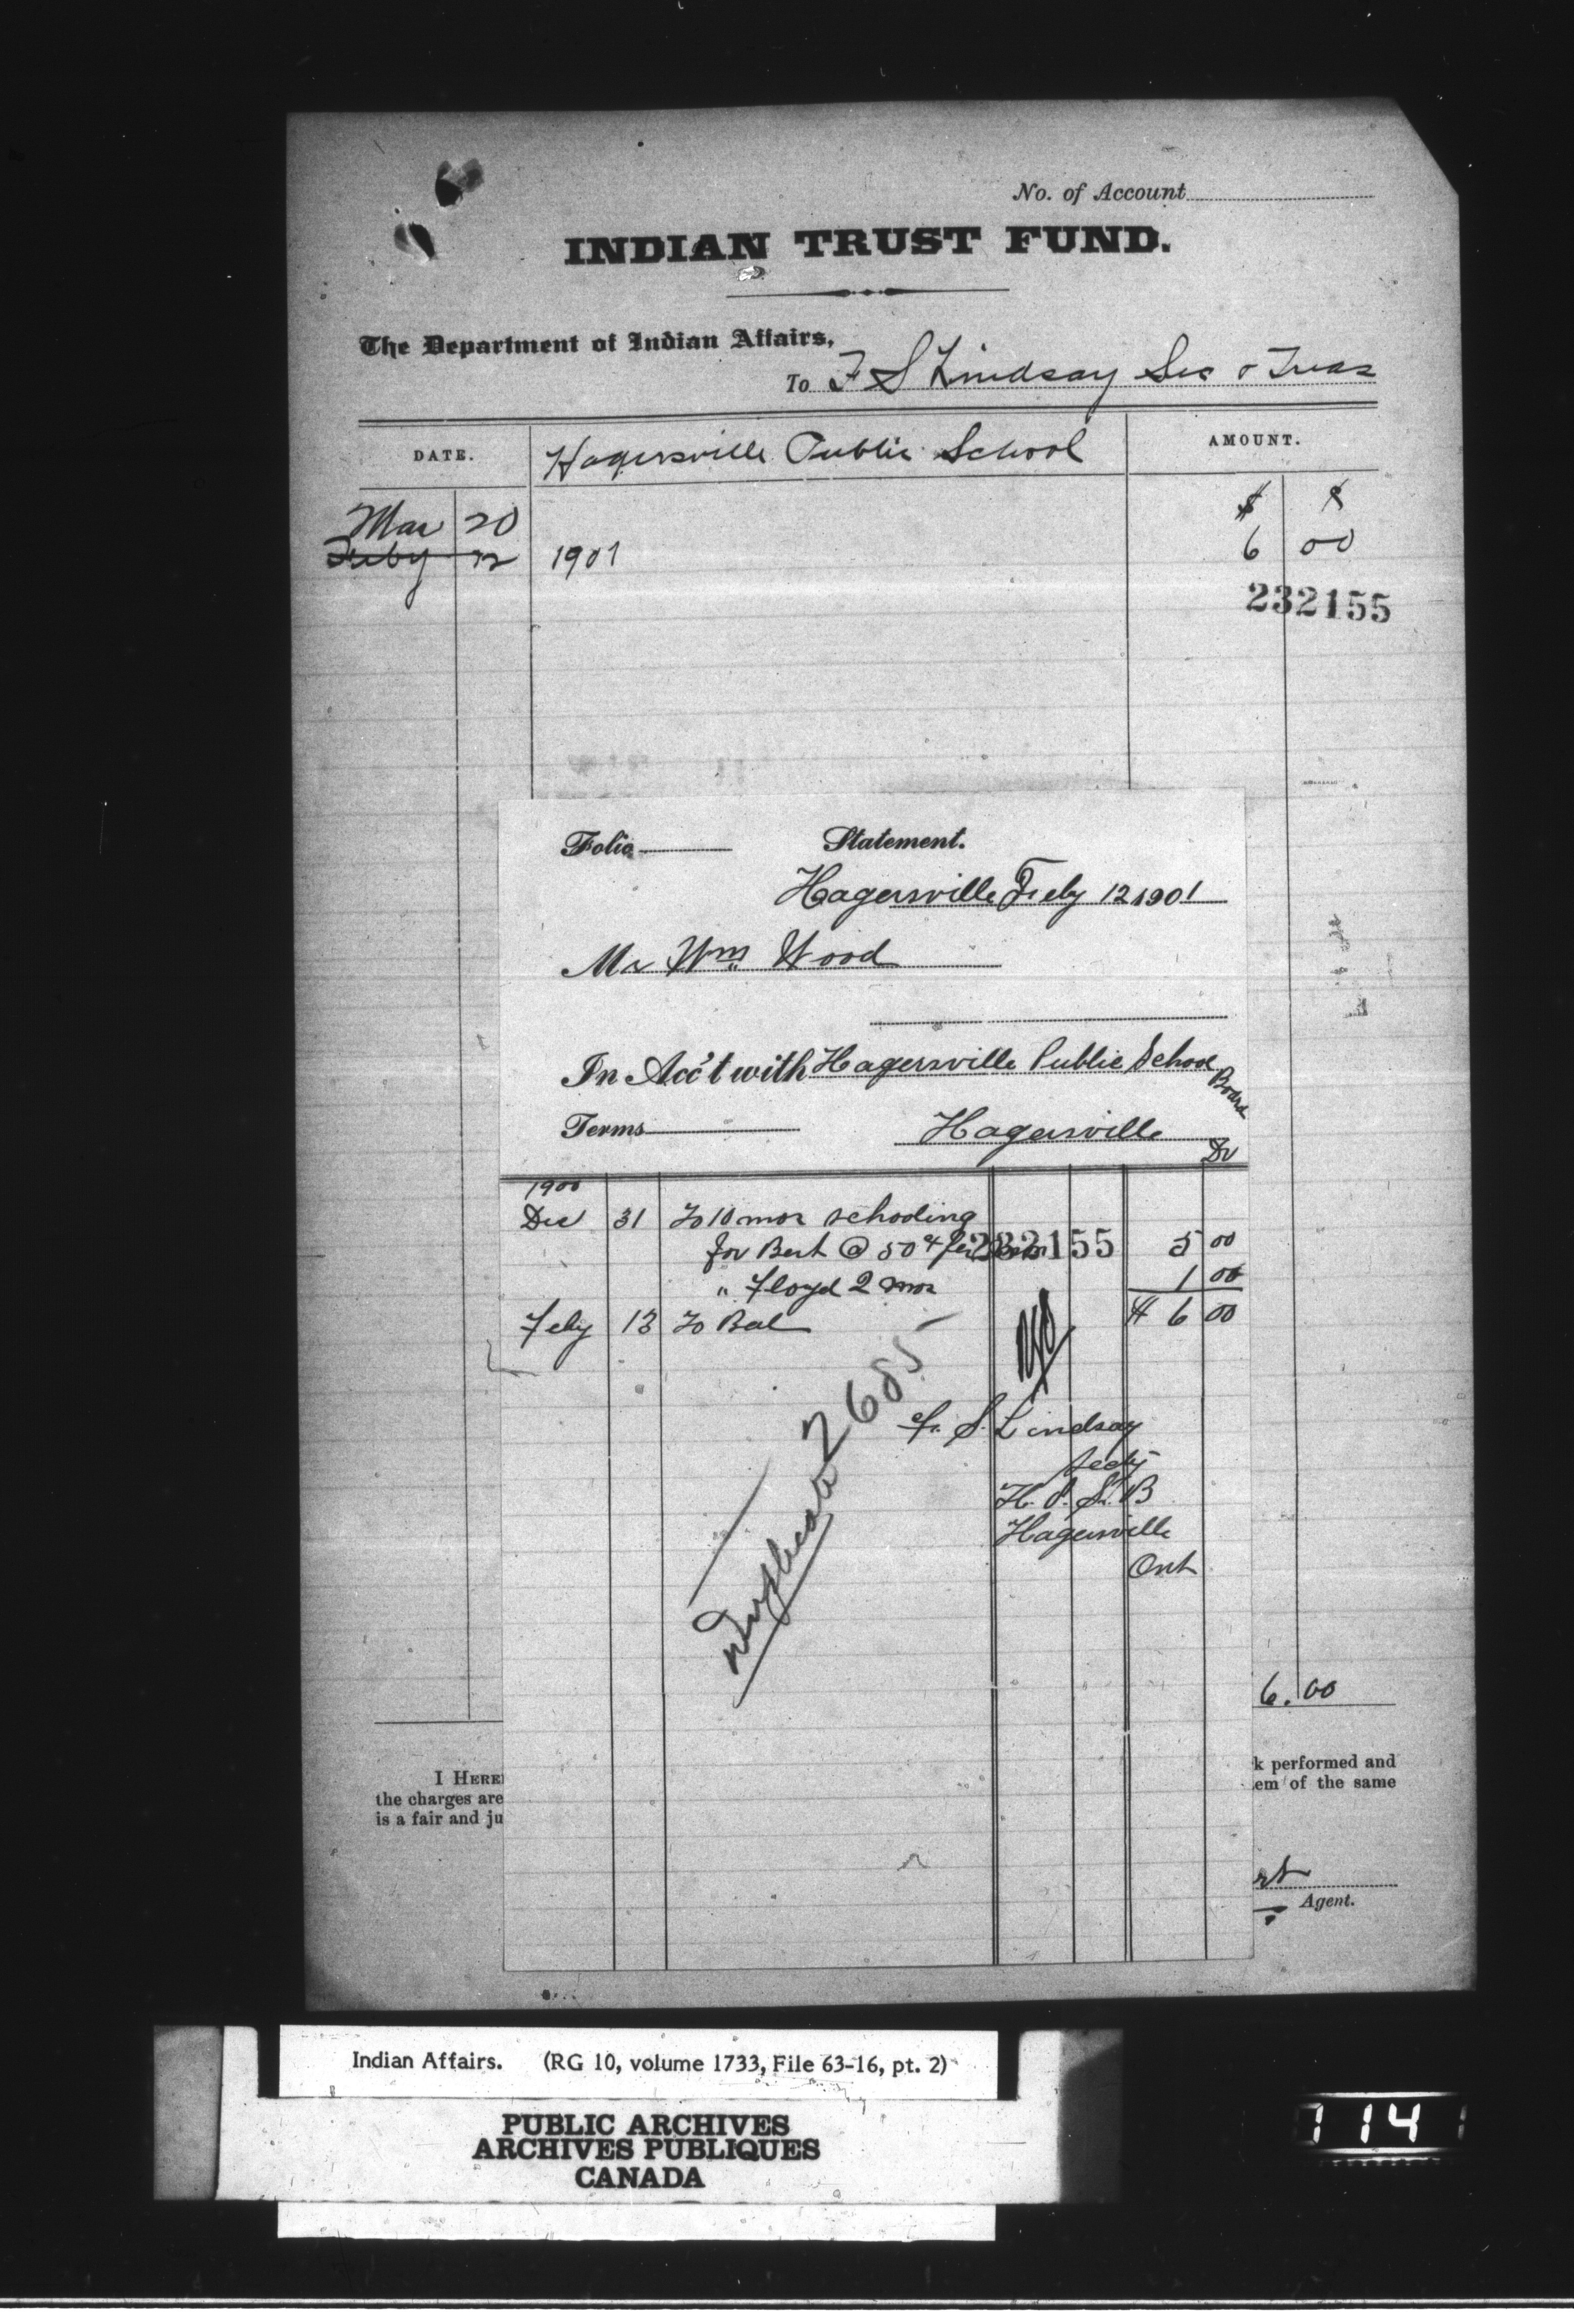 No. of Account
INDIAN TRUST FUND.
The Department of Indian Affairs,
To F S Lindsay Sec & Treas
DATE.
Hagersville Public School
AMOUNT.
Mar 20
Feby 12 1901
6 00
232155
Folio
Statement.
Hagersville Feby 12 1901
Mr Wm Wood
In Acc't with Hagersville Public School Board
Terms
Hagersville
Dr
1900
Dec 31 To 10 mos schooling
for Bert @ 50¢ per 5 00
232155
" Floyd 2 mos 1 00
Feby 12 To Bal $ 6 00
Duplicate 2685
F. S. Lindsay
Secty
H. P. S. B
Hagersville
Ont
6.00
I HERE
k performed and
the charges are
em of the same
is a fair and ju
Agent.
Indian Affairs. (RG 10, volume 1733, File 63-16, pt. 2)
PUBLIC ARCHIVES
ARCHIVES PUBLIQUES
CANADA
114